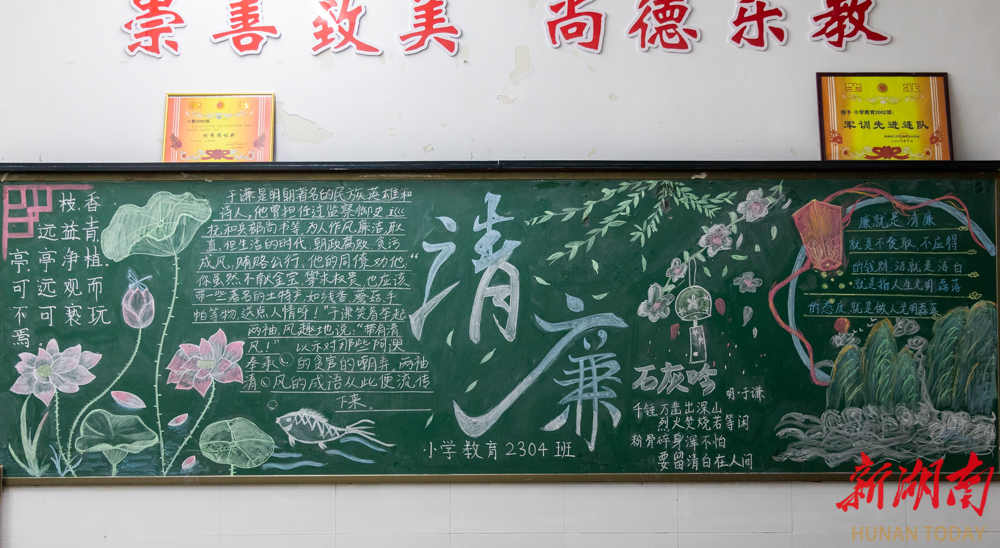 崇善致美 尚德乐教
小教2002班:
授予 小学教育2002班:
军训先进连队
香
枝青
远益植
亭净而
亭远观玩
可可亵
不
焉
于谦是明朝著名的民族英雄和
诗人,他曾担任过监察御史
抚和兵部尚书等,为人作风廉洁
真,但生活的时代,朝政腐败,贪污
成风,贿赂公行,他的同僚劝他,"
你虽然不献金宝、攀求权贵,也应该
带一些著名的土特产,如线香、蘑菇、手
帕等物,送点人情呀!"于谦笑着举起
两袖,风趣地说:"带有清
风!"以示对那些阿谀
奉承 的贪官的嘲弄,两袖
清 风的成语从此便流传
下来。
清廉
小学教育2304班
石灰吟
明·于谦
千锤万凿出深山
烈火焚烧若等闲
粉骨碎身浑不怕
要留清白在人间
廉就是清廉
就是不贪取不应得
的钱财,洁就是洁白
就是指人生光明磊落
的态度,就是做人光明磊落
新湖南
HUNAN TODAY